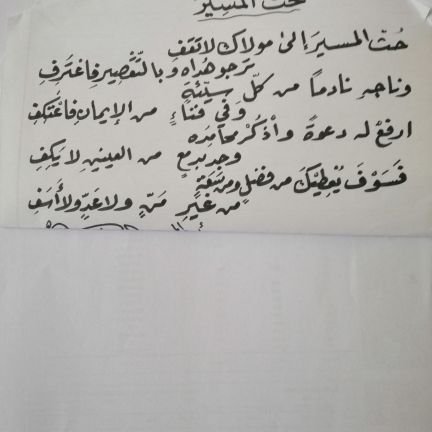 حُثّ المَسِير
حُثّ المسيرَ إلى مولاك لا تَقَفِ
ترجو هُداه وبالتّقصيرِ فاعْتَرِفِ
وناجهِ نادماً من كلّ سيّئةٍ
وفي فناءٍ من الإيمانِ فاعْتَكِفِ
ارفعْ له دعوةً واذكرْ محامِدَه
وجد بدمعٍ من العينينِ لا يَكِفِ
فَسَوْفَ يُعْطِيْكَ من فضلٍ ومن سَعَةٍ
من غَيْرِ مَنٍّ ولا عَدٍّ ولا أَسَفِ